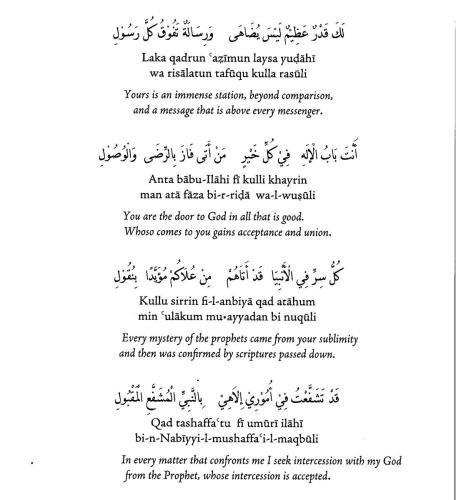 لَكَ قَدْرٌ عَظِيْمٌ لَيْسَ يُضَاهَى وَرِسَالَةٌ تَفُوْقُ كُلَّ رَسُوْلِ
Laka qadrun ʿaẓīmun laysa yuḍāhī
wa risālatun tafūqu kulla rasūli
Yours is an immense station, beyond comparison,
and a message that is above every messenger.
أَنْتَ بَابُ الْإِلَهِ فِيْ كُلِّ خَيْرٍ مَنْ أَتَى فَازَ بِالرِّضَى وَالْوُصُوْلِ
Anta bābu-Ilāhi fī kulli khayrin
man atā fāza bi-r-riḍā wa-l-wuṣūli
You are the door to God in all that is good.
Whoso comes to you gains acceptance and union.
كُلُّ سِرٍّ فِي الْأَنْبِيَا قَدْ أَتَاهُمْ مِنْ عُلَاكُمْ مُؤَيَّدًا بِنُقُوْلِ
Kullu sirrin fi-l-anbiyā qad atāhum
min ʿulākum mu•ayyadan bi nuqūli
Every mystery of the prophets came from your sublimity
and then was confirmed by scriptures passed down.
قَدْ تَشَفَّعْتُ فِيْ أُمُوْرِيْ إِلَاهِيْ بِالنَّبِيِّ الْمُشَفَّعِ الْمَقْبُوْلِ
Qad tashaffaʿtu fī umūrī ilāhī
bi-n-Nabīyyi-l-mushaffaʿi-l-maqbūli
In every matter that confronts me I seek intercession with my God
from the Prophet, whose intercession is accepted.